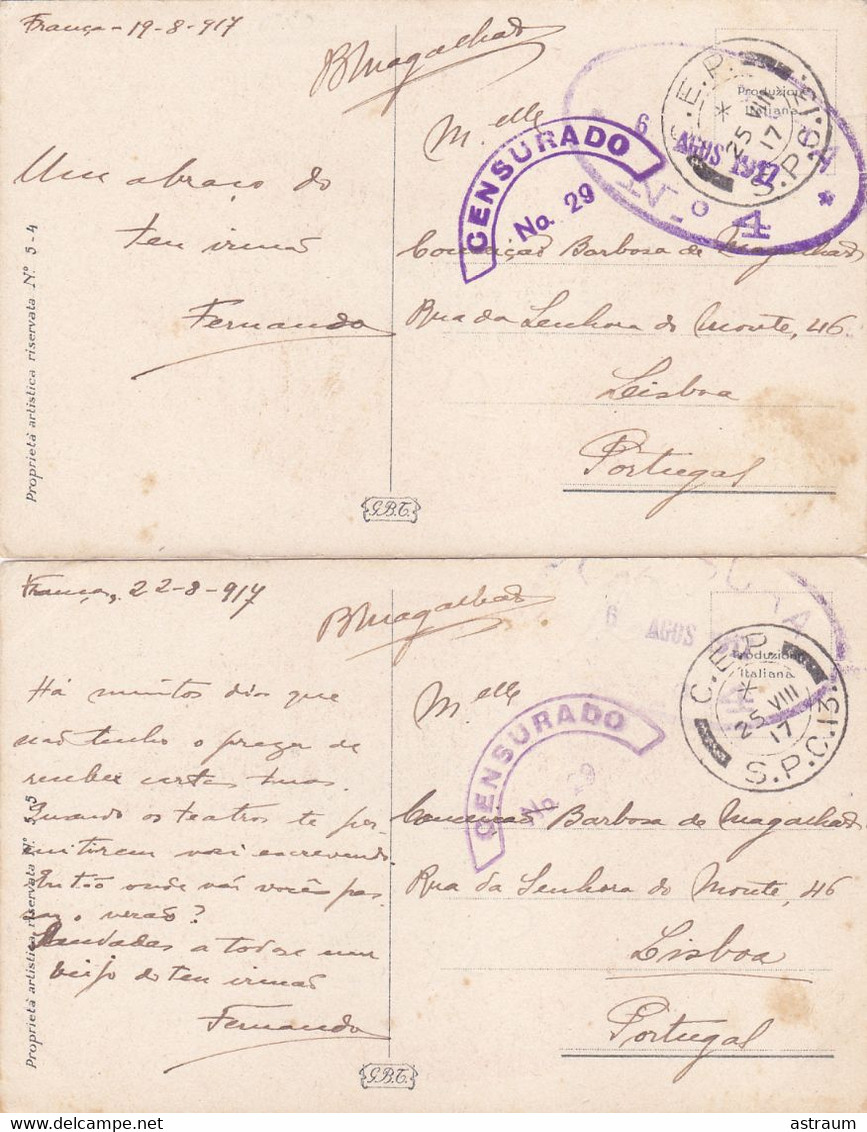 França - 19-8-917
BMagalhães
Produzione
Italiana
C.E.P.
25 VIII 17
S.P.C. 13.
6 AGOS 1917
N.º 4
CENSURADO
No. 29
M.elle
Um abraço do
teu irmão
Fernando
Conceição Barbosa de Magalhães
Rua da Senhora do Monte, 46
Lisboa
Portugal
Proprietà artistica riservata Nº 5-4
G.B.T.
França, 22-8-917
BMagalhães
CENSURA
6 AGOS 1917
4
Produzione
Italiana
C.E.P.
25 VIII 17
S.P.C. 13.
CENSURADO
No. 29
M.elle
Há muitos dias que
não tenho o prazer de
receber cartas tuas.
Quando os teatros te per-
mitirem vai escrevendo.
Então onde vão vocês pas-
sar o verão?
Saudades a todos e um
beijo do teu irmão
Fernando
Conceição Barbosa de Magalhães
Rua da Senhora do Monte, 46
Lisboa
Portugal
Proprietà artistica riservata Nº 5-5
G.B.T.
astraum